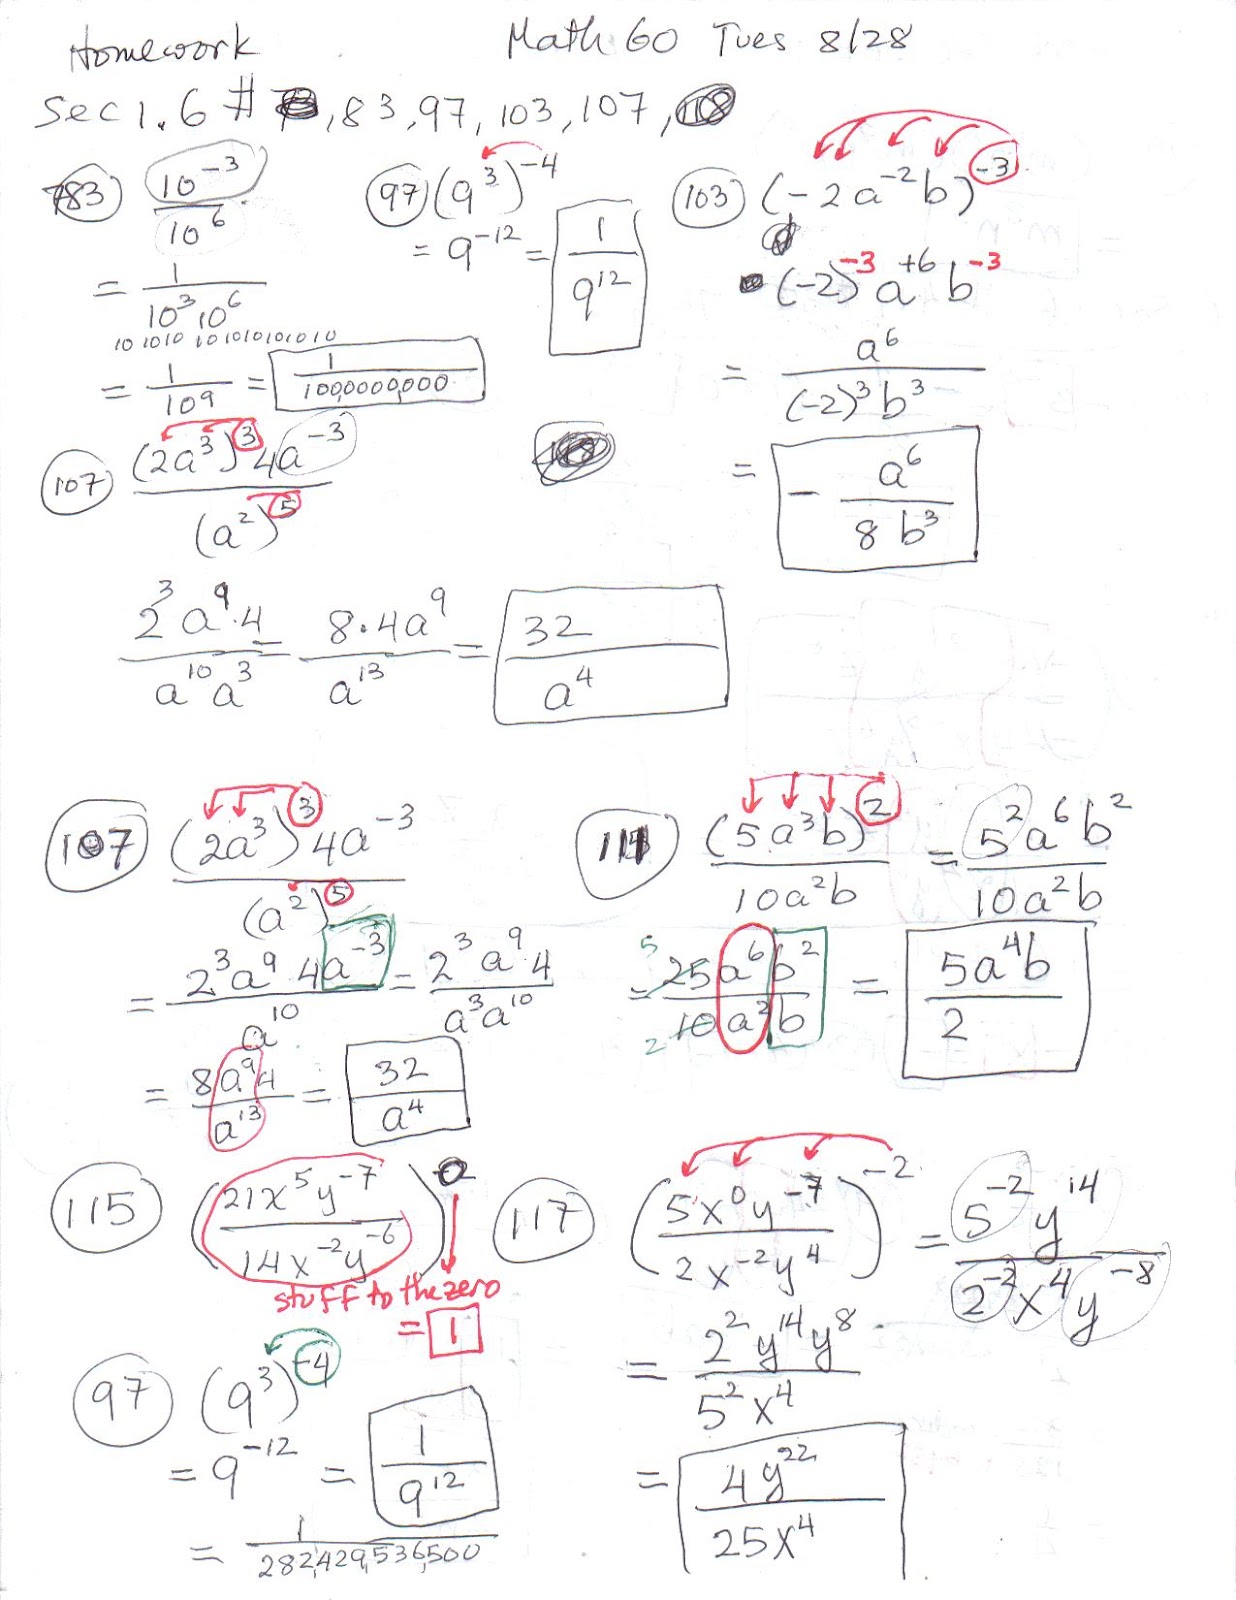 Homework Math 60 Tues 8/28
Sec 1.6 # , 83, 97, 103, 107,
83) 10^-3 / 10^6
= 1 / 10^3 · 10^6
10 10 10 10 10 10 10 10 10
= 1 / 10^9 = 1 / 100,0000,000
97 (9^3)^-4
= 9^-12 = 1 / 9^12
103 (-2a^-2 b)^-3
(-2)^-3 a^+6 b^-3
= a^6 / (-2)^3 b^3
= - a^6 / 8b^3
107 (2a^3)^3 4a^-3 / (a^2)^5
2^3 a^9 · 4 / a^10 a^3 = 8 · 4a^9 / a^13 = 32 / a^4
107 (2a^3)^3 4a^-3 / (a^2)^5
= 2^3 a^9 4a^-3 / a^10 = 2^3 a^9 4 / a^3 a^10
= 8a^9 4 / a^13 = 32 / a^4
111 (5a^3 b)^2 / 10a^2 b = 5^2 a^6 b^2 / 10a^2 b
5
= 25 a^6 b^2 / 10 a^2 b = 5a^4 b / 2
2
115 (21x^5 y^-7 / 14x^-2 y^-6)^0
stuff to the zero
= 1
117 (5x^0 y^-7 / 2x^-2 y^4)^-2 = 5^-2 y^14 / 2^-2 x^4 y^-8
= 2^2 y^14 y^8 / 5^2 x^4
= 4y^22 / 25x^4
97 (9^3)^-4
= 9^-12 = 1 / 9^12
= 1 / 282,429,536,500